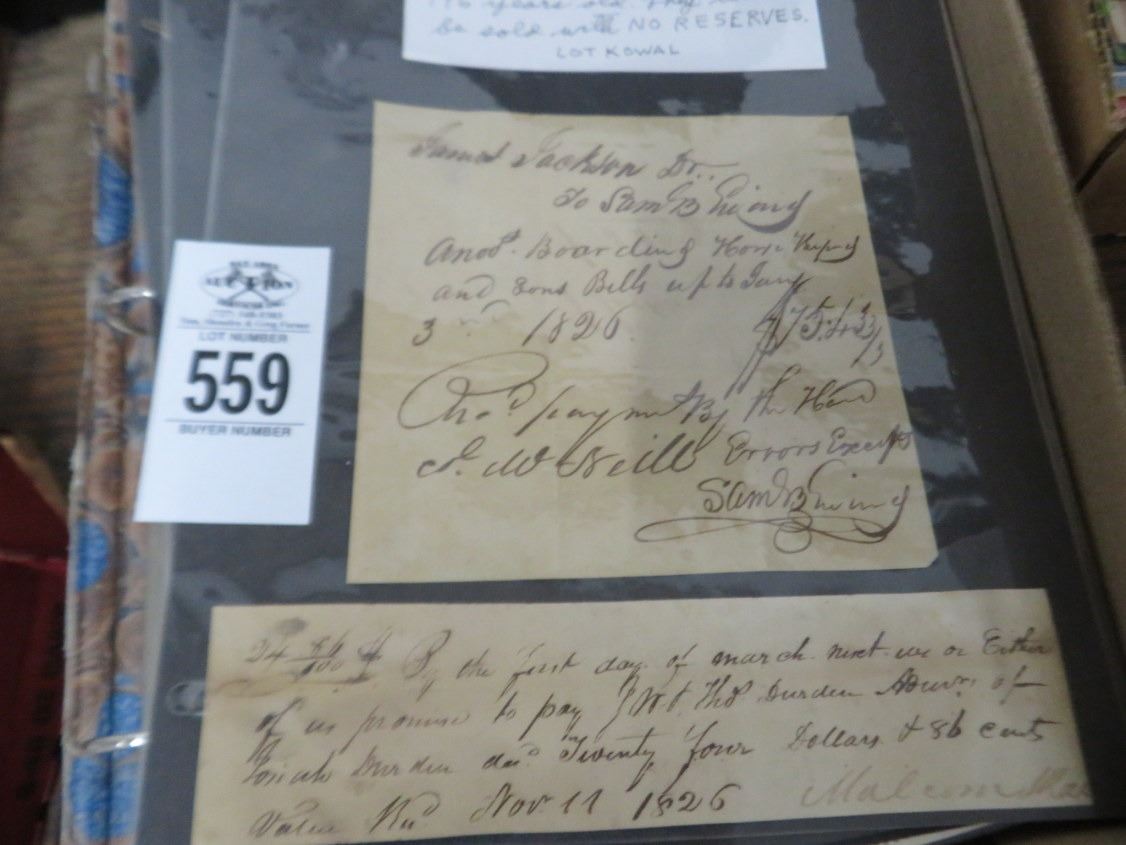 years old. They
be sold with NO RESERVES.
LOT KOWAL
AUCTION
LOT NUMBER
559
BUYER NUMBER
Jackson Dr.
To Sam B Ewing
Boarding Horse Keeping
and Sons Bills up to Jany
3rd 1826.
Recd payment By the Hand
McNeill Errors Excepd
Sam B Ewing
24 86/100 $ By the first day of march next we or Either
of us promise to pay J W & Thos Durden Admrs of
Josiah Durden decd Twenty four Dollars & 86 cents
Value Recd Nov 11 1826 Malcom